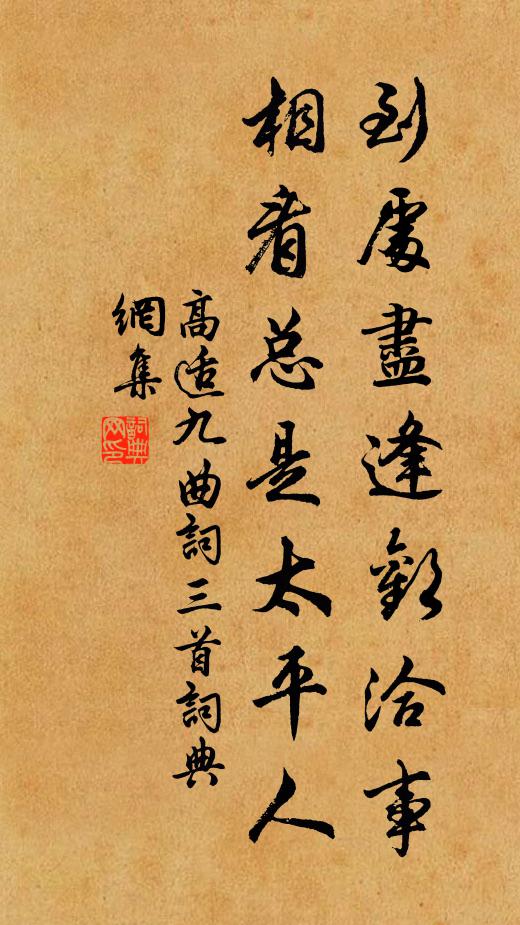 到處盡逢歡洽事
相看总是太平人
高适九曲詞三首詞典
網集
詞典网印